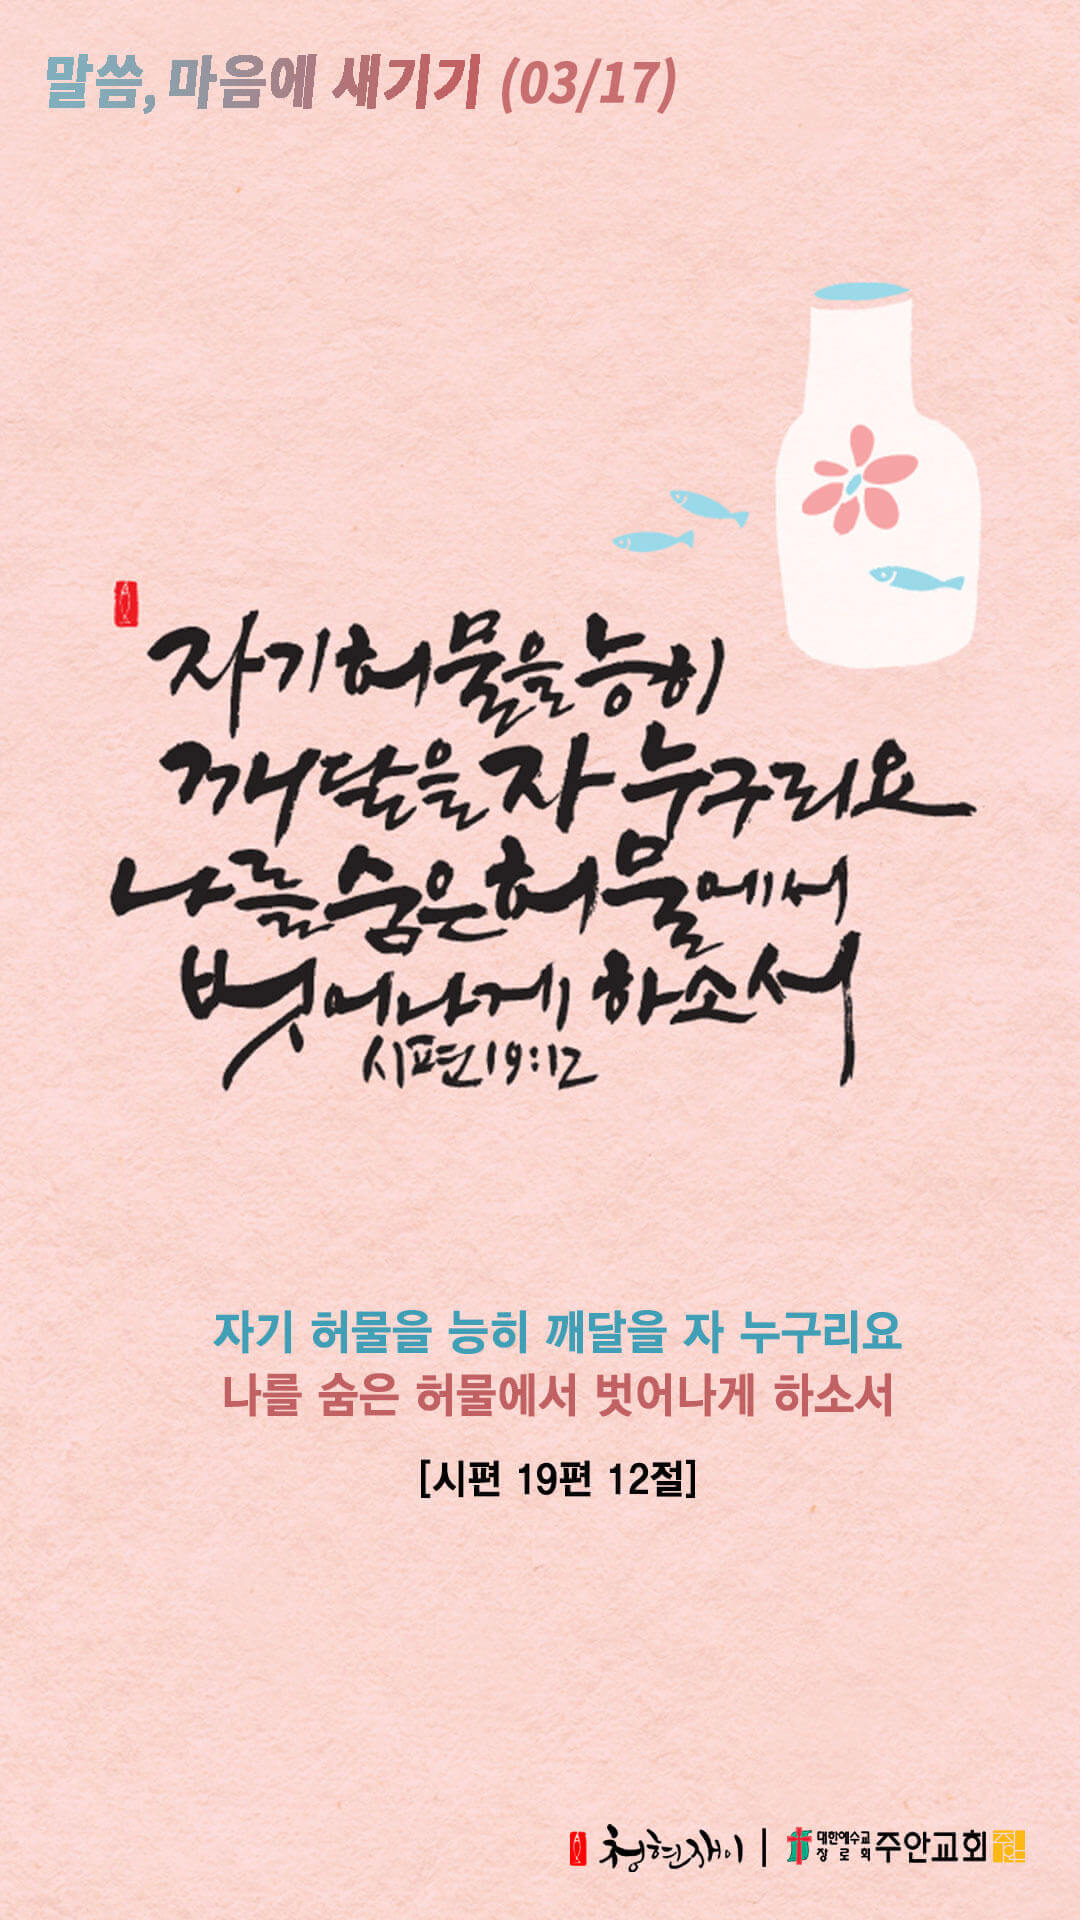 말씀, 마음에 새기기 (03/17)
자기 허물을 능히
깨달을 자 누구리요
나를 숨은 허물에서
벗어나게 하소서
시편 19:12
자기 허물을 능히 깨달을 자 누구리요
나를 숨은 허물에서 벗어나게 하소서
[시편 19편 12절]
청현재이 | 대한예수교 장로회 주안교회